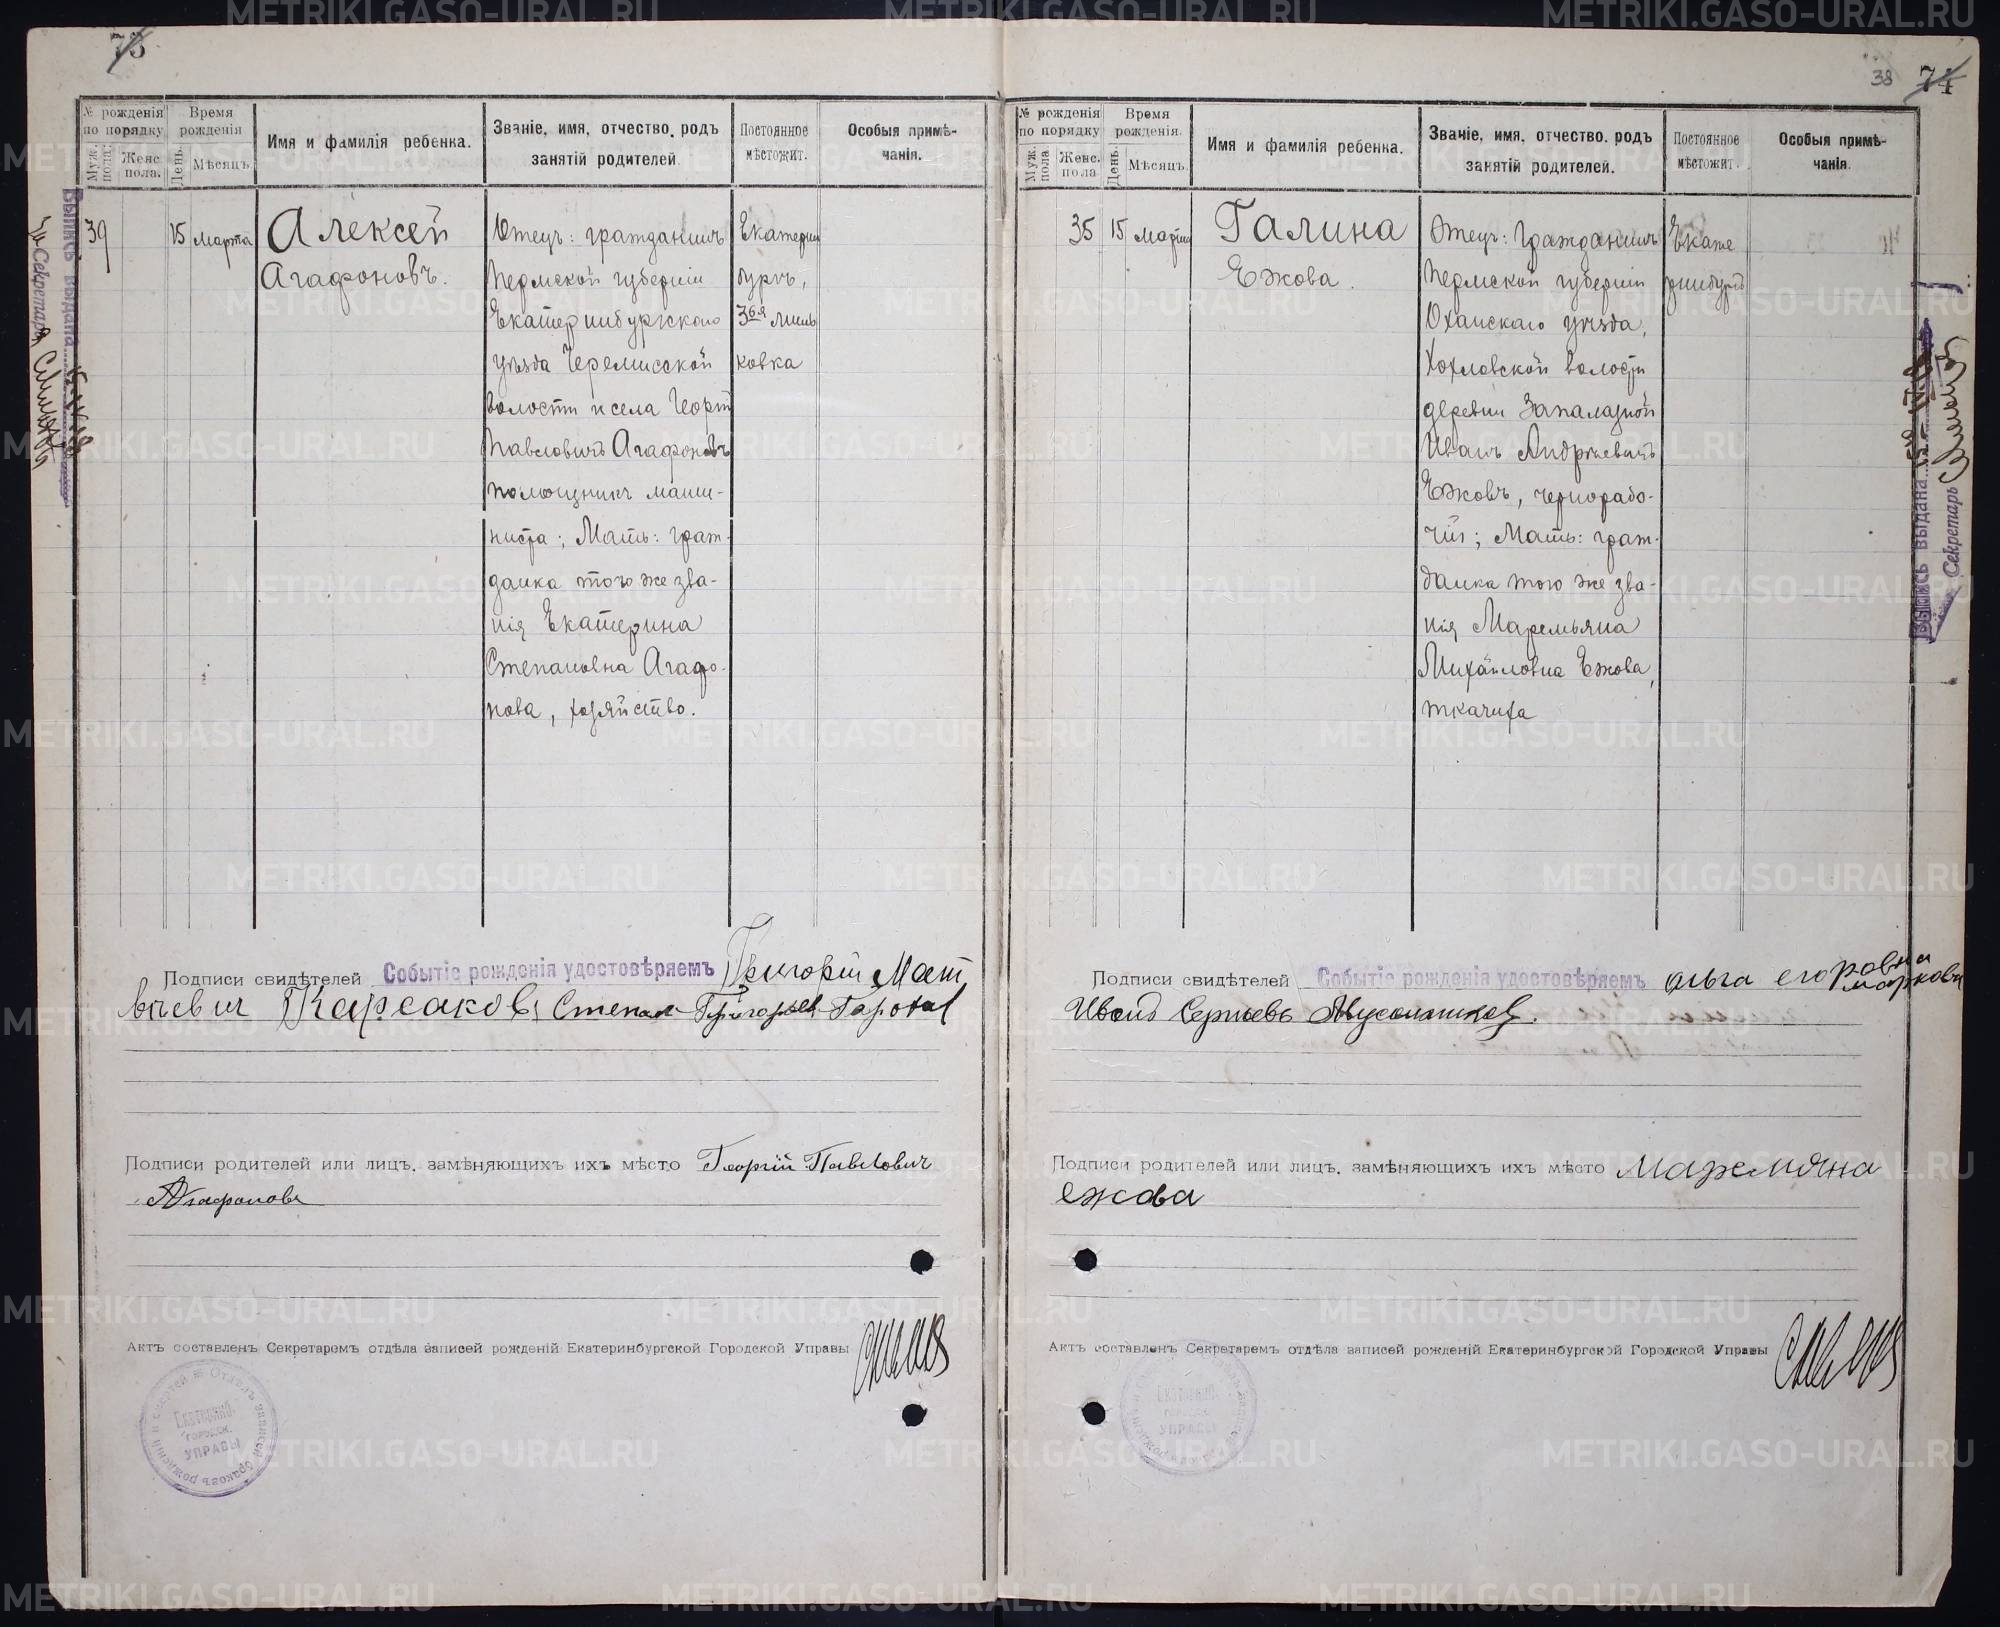 73
№ рожденія по порядку
Время рожденія
Имя и фамилія ребенка.
Званіе, имя, отчество, родъ занятій родителей.
Постоянное мѣстожит.
Особыя примѣчанія.
Муж. пола.
Женс. пола.
День.
Мѣсяцъ.
39
15
Марта
Алексей
Агафоновъ.
Отецъ: гражданинъ
Пермской губерніи
Екатеринбургскаго
уѣзда Черемисской
волости и села Георгій
Павловичъ Агафоновъ
помощникъ маши-
ниста; Мать: граж-
данка того же зва-
нія Екатерина
Степановна Агафо-
нова, хозяйство.
Екатерин
бургъ,
ковка
Подписи свидѣтелей Событіе рожденія удостовѣряемъ Григорій Мат
вѣевич Карсаков Степан Григорьев
Подписи родителей или лицъ, замѣняющихъ ихъ мѣсто Георгій Павлович
Агафонов
Актъ составленъ Секретаремъ отдѣла записей рожденій Екатеринбургской Городской Управы
Отдѣлъ записей браковъ рожденій и смертей
Екатеринб.
городск.
УПРАВЫ
Выпись выдана
За Секретаря
38
74
№ рожденія по порядку
Время рожденія.
Имя и фамилія ребенка.
Званіе, имя, отчество, родъ занятій родителей.
Постоянное мѣстожит.
Особыя примѣчанія.
Муж. пола
Женс. пола
День.
Мѣсяцъ.
35
15
Марта
Галина
Ежова.
Отецъ: гражданинъ
Пермской губерніи
Оханскаго уѣзда,
Хохловской волости
деревни
Иванъ Андреевичъ
Ежовъ, чернорабо-
чій; Мать: граж-
данка того же зва-
нія Маремьяна
Михайловна Ежова,
ткачиха
Екате
ринбургъ
Подписи свидѣтелей Событіе рожденія удостовѣряемъ ольга егоровна
маркова
Иванъ Сергѣевъ
Подписи родителей или лицъ, замѣняющихъ ихъ мѣсто маремяна
ежова
Актъ составленъ Секретаремъ отдѣла записей рожденій Екатеринбургской Городской Управы
Екатеринб.
городск.
УПРАВЫ
Выпись выдана
Секретарь
METRIKI.GASO-URAL.RU